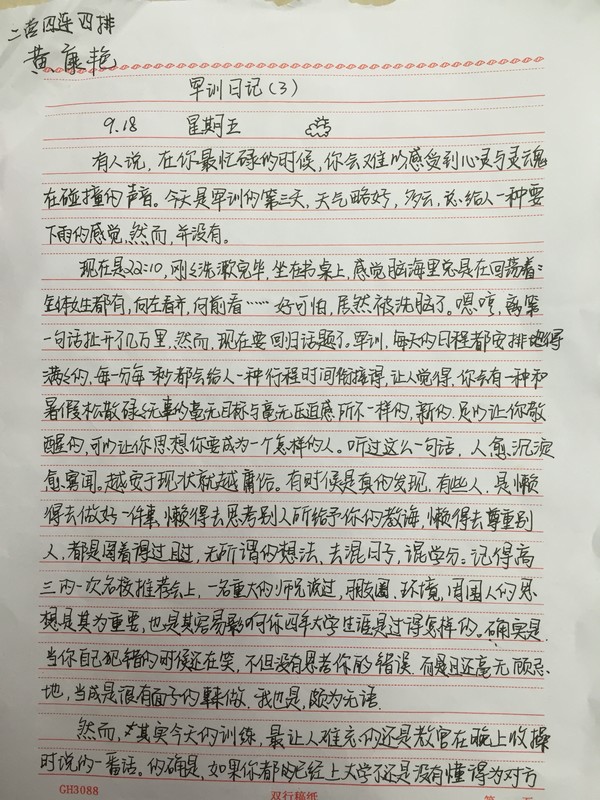 二营四连四排
黄康艳
军训日记(3)
9.18 星期五
有人说,在你最忙碌的时候,你会难以感受到心灵与灵魂
在碰撞的声音。今天是军训的第三天,天气略好,多云,总给人一种要
下雨的感觉,然而,并没有。
现在是22:10,刚刚洗漱完毕,坐在书桌上,感觉脑海里总是在回荡着:
全体女生都有,向左看齐,向前看……好可怕,居然被洗脑了。嗯哼,离第
一句话扯开了几万里,然而,现在要回归话题了。军训,每天的日程都安排地得
满满的,每一分每一秒都会给人一种行程时间衔接得,让人觉得,你会有一种和
暑假松散碌碌无事的毫无目标与毫无压迫感所不一样的,新的,足以让你敬
醒的,可以让你思想你要成为一个怎样的人。听过这么一句话,人愈沉淀
愈寡闻。越安于现状就越庸俗。有时候是真的发现,有些人,是懒
得去做好一件事,懒得去思考别人所给予你的教诲,懒得去尊重别
人,都是围着得过且过,无所谓的想法,去混日子,混学分。记得高
三的一次名校推荐会上,一名重大的师兄说过,朋友圈,环境,周围人的思
想是其为重要,也是其容易影响你四年大学生涯是过得怎样的。确实是,
当你自己犯错的时候还在笑,不但没有思考你的错误,而且还毫无顾忌
地,当成是很有面子的事来做,我也是,颇为无语.
然而,其实今天的训练,最让人难忘的还是教官在晚上收操
时说的一番话。的确是,如果你都已经上大学了还是没有懂得为对方
GH3088 双行稿纸 第 页